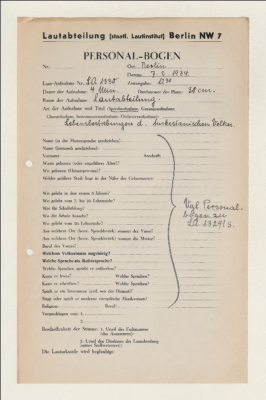 Lautabteilung [staatl. Lautinstitut] Berlin NW 7
PERSONAL-BOGEN
Nr. Ort: Berlin
Datum: 1934
Laut-Aufnahme Nr. LA 1330 Zeitangabe:
Dauer der Aufnahme: 4 Min. Durchmesser der Platte: cm.
Raum der Aufnahme: Lautabteilung.
Art der Aufnahme und Titel (Sprechaufnahme, Gesangsaufnahme,
Choraufnahme, Instrumentenaufnahme, Orchesteraufnahme):
Name (in der Muttersprache geschrieben):
Name (lateinisch geschrieben):
Vorname: Anschrift:
Wann geboren (oder ungefähres Alter)?
Wo geboren (Heimatprovinz)?
Welche größere Stadt liegt in der Nähe des Geburtsortes:
Wo gelebt in den ersten 6 Jahren?
Wo gelebt vom 7. bis 20. Lebensjahr?
Was für Schulbildung?
Wo die Schule besucht?
Wo gelebt vom 20. Lebensjahr?
Aus welchem Ort (bezw. Sprachbezirk) stammt der Vater?
Aus welchem Ort (bezw. Sprachbezirk) stammt die Mutter?
Beruf des Vaters?
Welchem Volksstamm angehörig?
Welche Sprache als Muttersprache?
Welche Sprachen spricht er außerdem?
Kann er lesen? Welche Sprachen?
Kann er schreiben? Welche Sprachen?
Spielt er ein Instrument (evtl. aus der Heimat)?
Singt oder spielt er moderne europäische Musikweisen?
Religion: Beruf:
Vgl Personal-
bogen zu
LA 1329/3.
Vorgeschlagen von: 1.
2.
Beschaffenheit der Stimme: 1. Urteil des Fachmannes
(des Assistenten)
2. Urteil des Direktors der Lautabteilung
(seines Stellvertreters):
Die Lauturkunde wird beglaubigt: